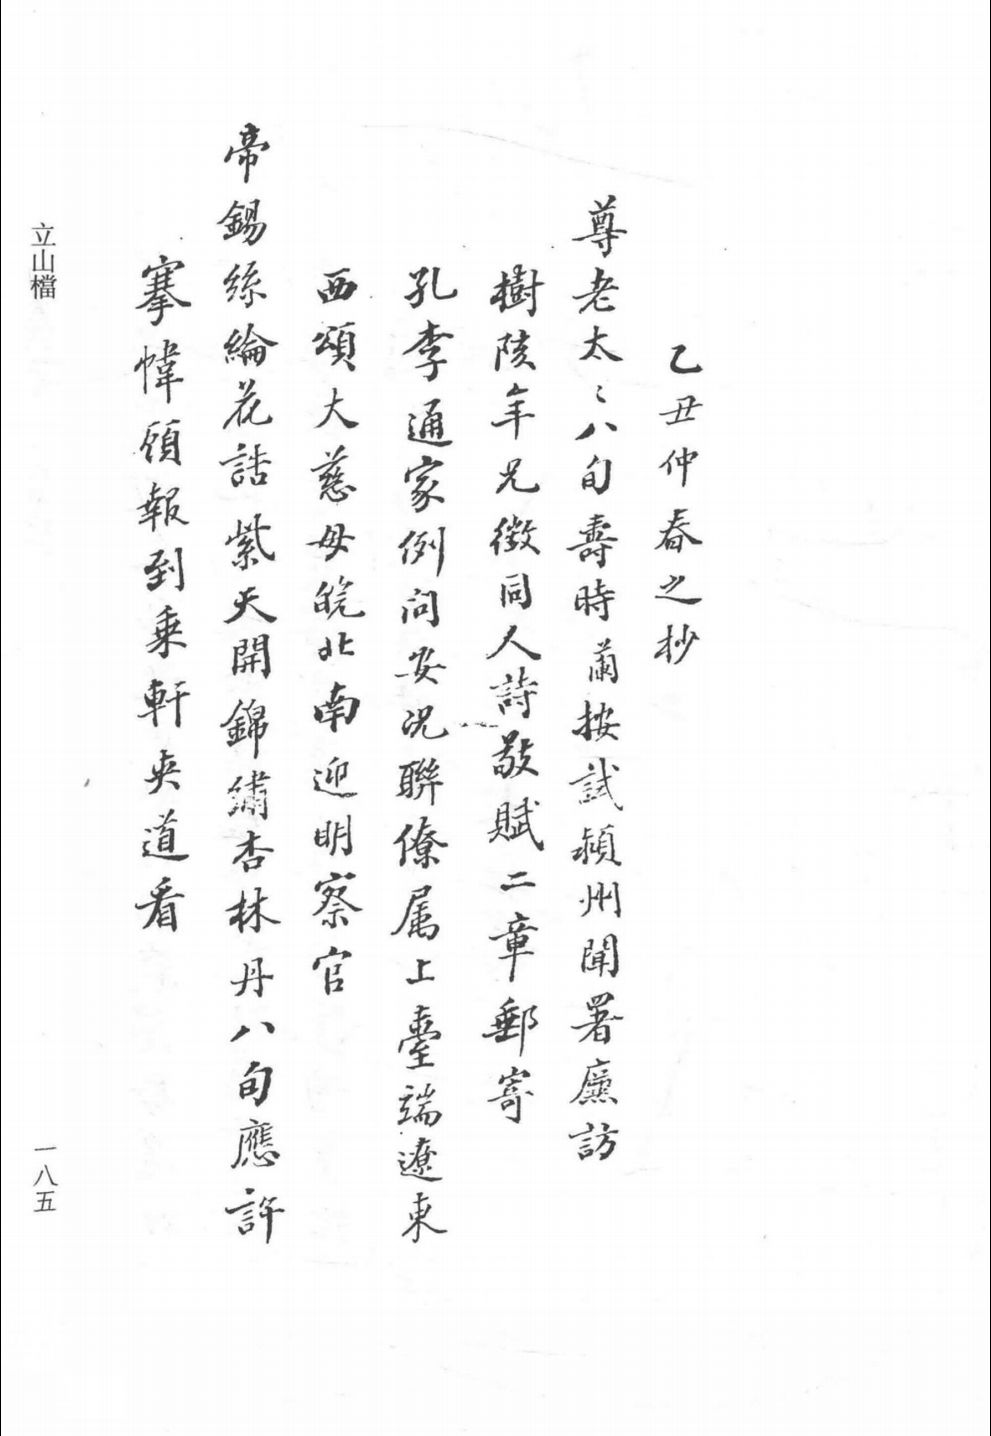 乙丑仲春之抄
尊老太〻八旬壽時蘭按試潁州聞署廉訪
樹陵年兄徵同人詩敬賦二章郵寄
孔李通家例問安況聯僚属上臺端遼東
西頌大慈母皖北南迎明察官
帝錫絲綸花誥紫天開錦繡杏林丹八旬應許
搴幃領報到乗軒夾道看
立山檔
一八五